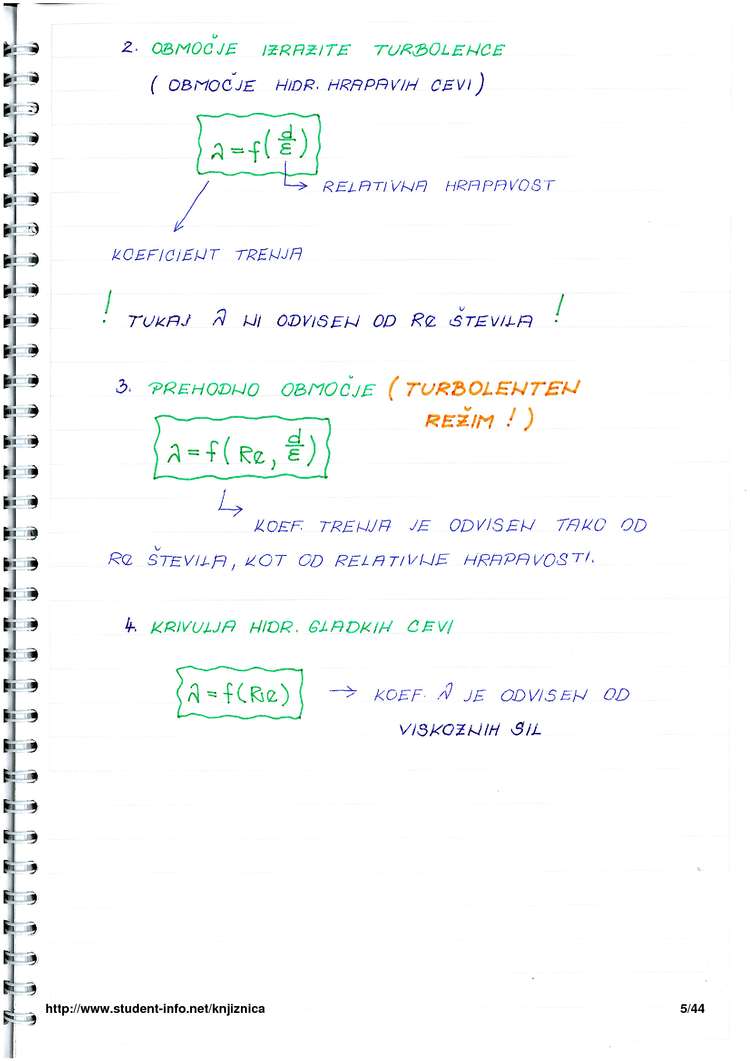 2. OBMOČJE IZRAZITE TURBOLENCE
( OBMOČJE HIDR. HRAPAVIH CEVI )
λ = f( d/ε )
RELATIVNA HRAPAVOST
KOEFICIENT TRENJA
! TUKAJ λ NI ODVISEN OD Re ŠTEVILA !
3. PREHODNO OBMOČJE ( TURBOLENTEN
REŽIM ! )
λ = f( Re, d/ε )
KOEF. TRENJA JE ODVISEN TAKO OD
Re ŠTEVILA, KOT OD RELATIVNE HRAPAVOSTI.
4. KRIVULJA HIDR. GLADKIH CEVI
λ = f(Re) → KOEF. λ JE ODVISEN OD
VISKOZNIH SIL
http://www.student-info.net/knjiznica 5/44